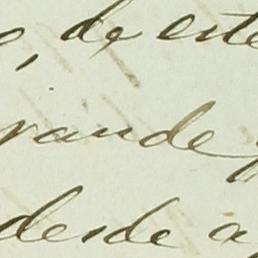 , de este
rande
desde a